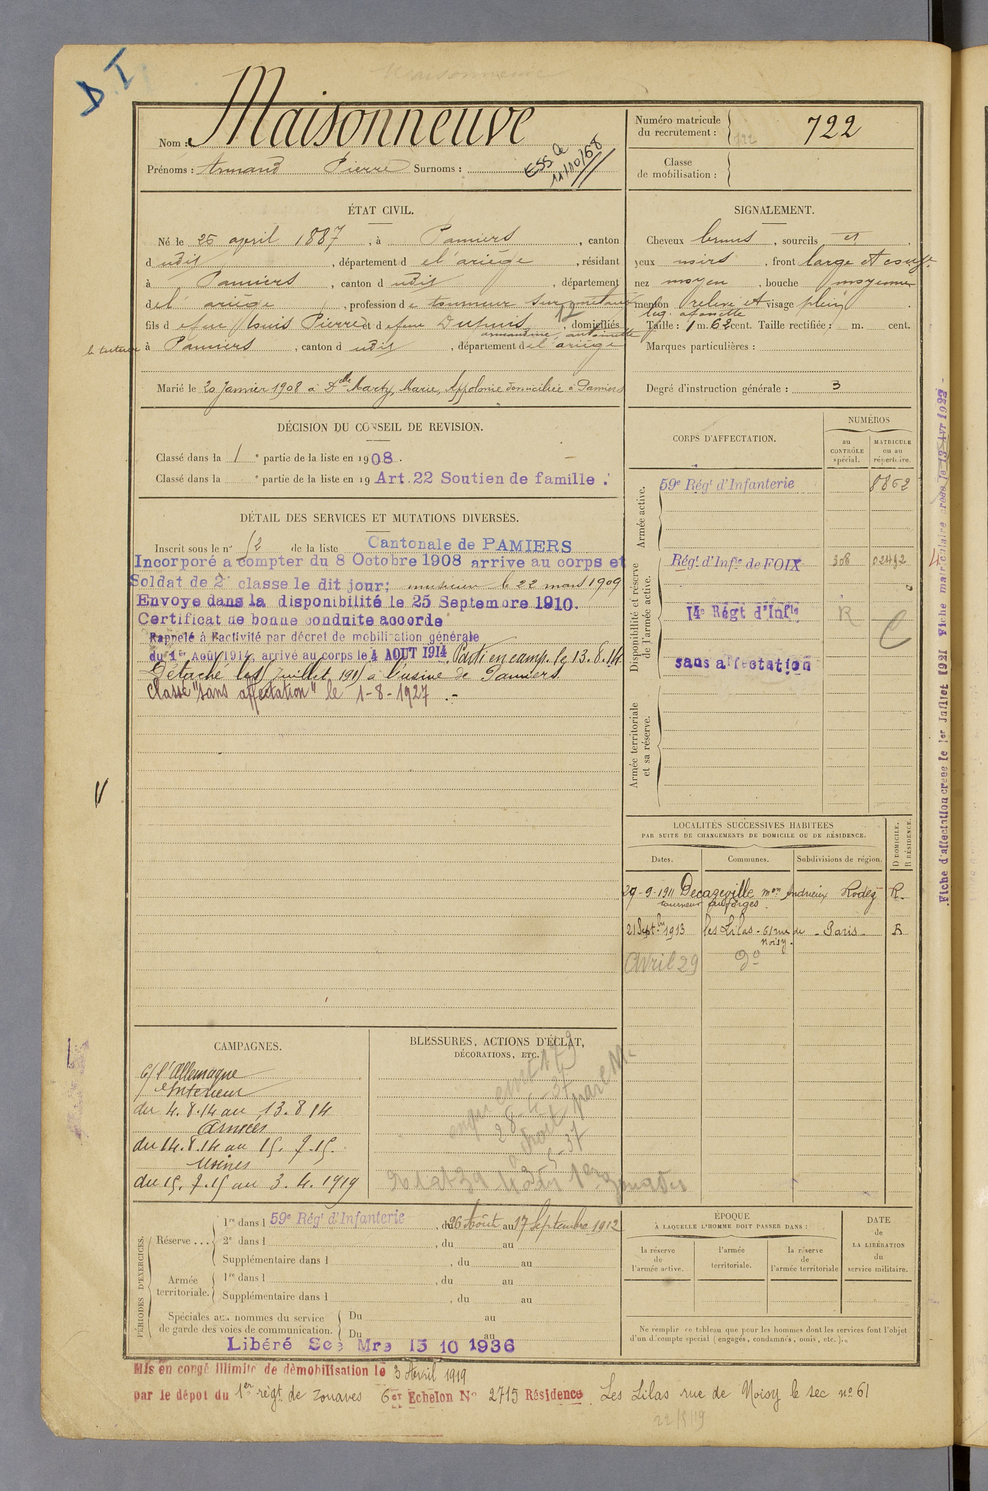 D I
Nom : Maisonneuve
Prénoms : Armand Pierre Surnoms :
11/10/68
Numéro matricule
du recrutement : 722
Classe
de mobilisation :
ÉTAT CIVIL.
Né le 25 april 1887, à Pamiers, canton
d udit, département d e l'ariège, résidant
à Pamiers, canton d udit, département
de l'ariège, profession de tourneur sur métaux
fils d efeu Louis Pierre et d efeue Dupuis, domiciliés
12
à Pamiers, canton d udit, département de l'ariège
Marié le 20 janvier 1908 à Dlle Marty, Marie, Appolonie domiciliée à Pamiers
SIGNALEMENT.
Cheveux bruns, sourcils et
yeux noirs, front large et
nez moyen, bouche moyenne
menton relevé et visage plein
Taille : 1 m. 62 cent. Taille rectifiée : m. cent.
Marques particulières :
Degré d'instruction générale : 3
DÉCISION DU CONSEIL DE REVISION.
Classé dans la 1e partie de la liste en 1908.
Classé dans la e partie de la liste en 19 Art. 22 Soutien de famille.
DÉTAIL DES SERVICES ET MUTATIONS DIVERSES.
Inscrit sous le n° 52 de la liste Cantonale de PAMIERS
Incorporé a compter du 8 Octobre 1908 arrive au corps et
Soldat de 2e classe le dit jour; musicien le 22 mars 1909
Envoye dans la disponibilité le 25 Septemore 1910.
Certificat de bonne conduite accordé
Rappelé à l'activité par décret de mobilisation générale
du 1er Août 1914, arrivé au corps le 4 AOUT 1914. Parti en camp. le 13.8.14
Détaché le 15 juillet 1915 à l'usine de Pamiers
Classé "sans affectation" le 1-8-1927 .-
CORPS D'AFFECTATION.
NUMÉROS
au
CONTRÔLE
spécial.
MATRICULE
ou au
répertoire.
Armée active.
59e Régt d'Infanterie 8862
Disponibilité et réserve
de l'armée active.
Régt. d'Infie de FOIX 308 02492
14e Régt d'Infie R
sans affectation
Armée territoriale
et sa réserve.
Fiche d'affectation creee le 1er Juillet 1921 Fiche matriculaire creee le
LOCALITÉS SUCCESSIVES HABITÉES
PAR SUITE DE CHANGEMENTS DE DOMICILE OU DE RÉSIDENCE.
Dates. Communes. Subdivisions de région. D DOMICILE. R RÉSIDENCE.
29-9-1911 Decazeville, mon Andrieux Rodez R.
tourneur aux forges.
21 Septbre 1913 les Lilas - 61 rue de Paris R
Noisy.
Avril 29 do
CAMPAGNES.
c/ l'Allemagne
Intérieur
du 4.8.14 au 13.8.14
Armées
du 14.8.14 au 15.7.15.
Usines
du 15.7.15 au 3.4.1919
BLESSURES, ACTIONS D'ÉCLAT,
DÉCORATIONS, ETC.
PÉRIODES D'EXERCICES.
Réserve ...
1re dans l 59e Régt d'Infanterie, du 26 Août au 17 Septembre 1912
2e dans l , du au
Supplémentaire dans l , du au
Armée
territoriale.
1re dans l , du au
Supplémentaire dans l , du au
Spéciales aux hommes du service
de garde des voies de communication.
Du au
Du au
Libéré Sce Mre 15 10 1936
ÉPOQUE
À LAQUELLE L'HOMME DOIT PASSER DANS :
la réserve
de
l'armée active.
l'armée
territoriale.
la réserve
de
l'armée territoriale
DATE
de
LA LIBÉRATION
du
service militaire.
Ne remplir ce tableau que pour les hommes dont les services font l'objet
d'un décompte spécial (engagés, condamnés, omis, etc.).
Mis en congé illimité de démobilisation le 3 Avril 1919
par le dépôt du 1er régt de Zouaves 6er Echelon N° 2715 Résidence Les Lilas rue de Noisy le sec n° 61
22/8/19